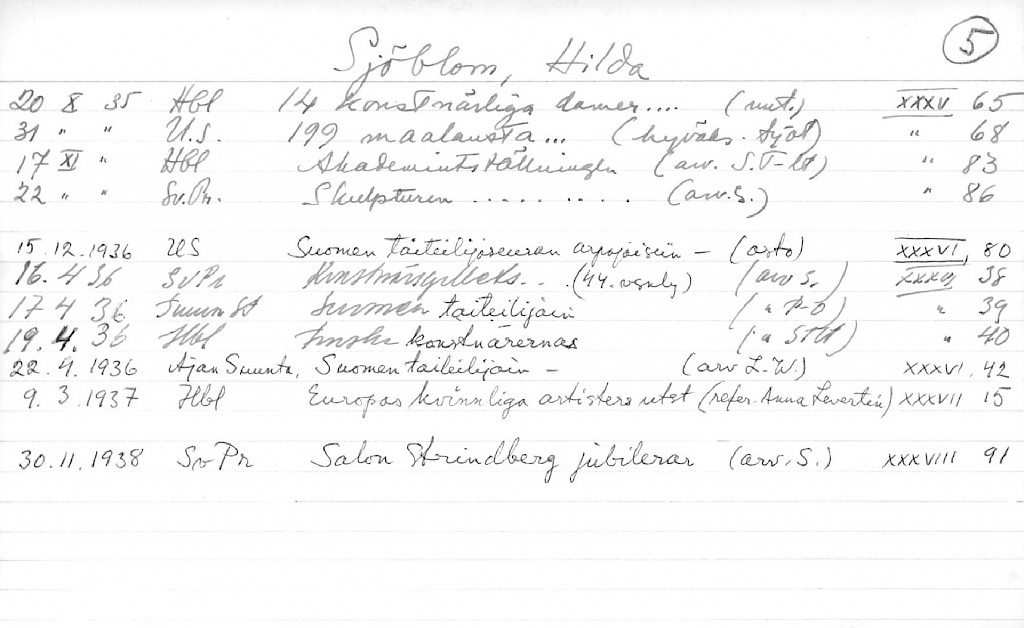 5
Sjöblom, Hilda
20 X 35 Hbl 14 konstnärliga damer.... (nut.) XXXV 65
31 " " U.S. 199 maalausta... (hyväks. työt) " 68
17 XI " Hbl Akademiutställningen (arv. S.T-lt) " 83
22 " " Sv.Pr. Skulpturen .......... (arv.S.) " 86
15.12.1936 US Suomen taiteilijaseuran arpajaisiin – (arto) XXXVI, 80
16. 4 36 SvPr Konstnärsgillets... (44. vsnly) (arv S.) XXXVI 38
17 4 36 Suomen taiteilijain (" P-O) " 39
19. 4. 36 Hbl Finska konstnärernas (" STlt) " 40
22. 4. 1936 Ajan Suunta, Suomen taiteilijain – (arv L.W.) XXXVI. 42
9. 3. 1937 Hbl Europas kvinnliga artisters utst (refer. Anna Levertin) XXXVII 15
30.11.1938 Sv Pr Salon Strindberg jubilerar (arv. S.) XXXVIII 91